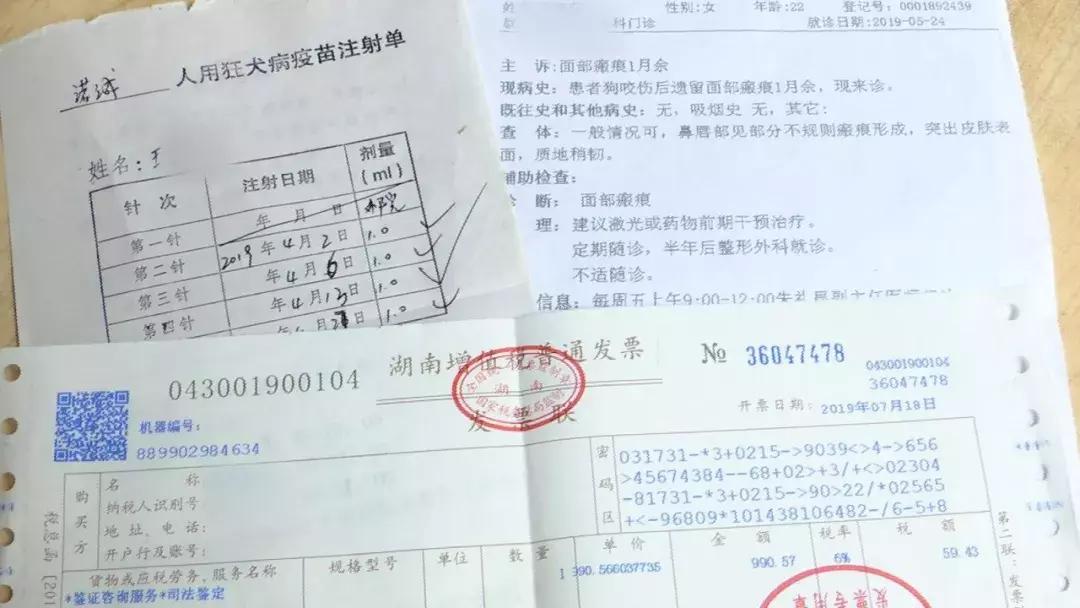 诺诚 人用狂犬病疫苗注射单
姓名:王
针 次 注射日期 剂量(ml)
第一针 年 月 日
第二针 2019年4月2日 1.0
第三针 年4月6日 1.0
第四针 年4月13日 1.0
月 日 1.0
性别:女 年龄:22 登记号:0001892439
科门诊 就诊日期:2019-05-24
主 诉:面部瘢痕1月余
现病史:患者狗咬伤后遗留面部瘢痕1月余,现来诊。
既往史和其他病史:无,吸烟史 无,其它:
查 体:一般情况可,鼻唇部见部分不规则瘢痕形成,突出皮肤表
面,质地稍韧。
辅助检查:
断: 面部瘢痕
理:建议激光或药物前期干预治疗。
定期随诊,半年后整形外科就诊。
不适随诊。
信息:每周五上午9:00-12:00朱礼昆副主任医师
043001900104 湖南增值税普通发票 № 36047478 043001900104
36047478
发票联
全国统一发票监制章
湖南
国家税务总局监制
机器编号:
889902984634
开票日期:2019年07月18日
购买方
名 称
纳税人识别号
地 址、电 话:
开户行及账号:
密码区
031731-*3+0215->9039<>4->656
>45674384--68+02>+3/+<>02304
-81731-*3+0215->90>22/*02565
+<-96809*101438106482-/6-5+8
货物或应税劳务、服务名称 规格型号 单位 数量 单价 金额 税率 税额
*鉴证咨询服务*司法鉴定 1 990.566037735 990.57 6% 59.43
第二联:发票
税总函[201
发票专用章